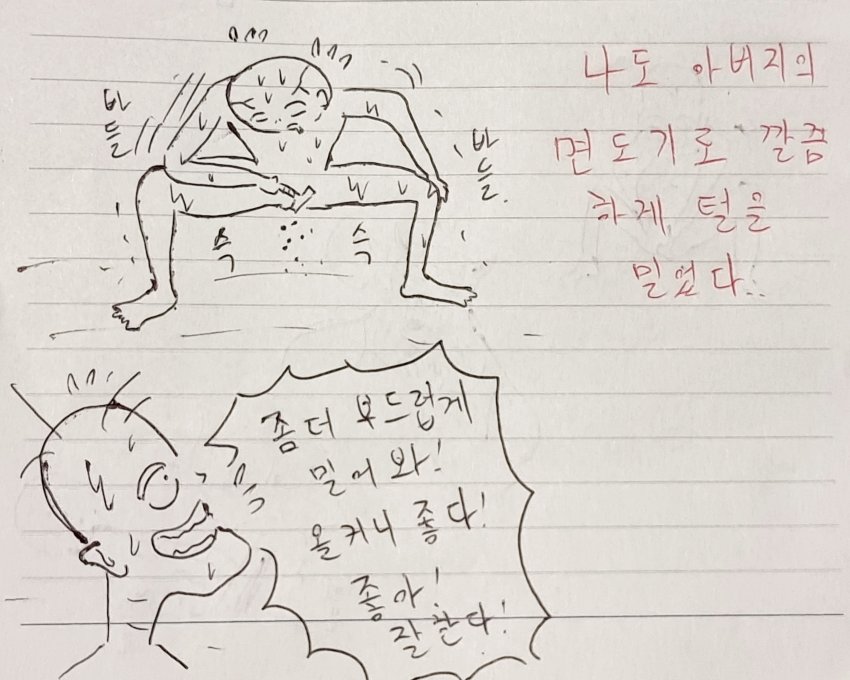 바들
바들
나도 아버지의
면도기로 깔끔
하게 털을
밀었다..
슥
슥
좀 더 부드럽게
밀어 봐!
올커니 좋다!
좋아!
잘한다!